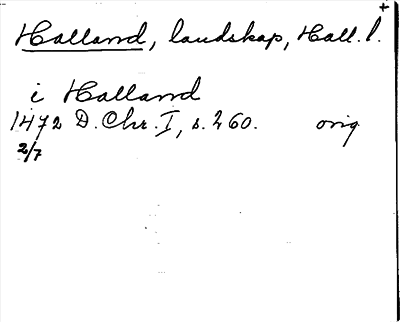 +
Halland, landskap, Hall. l.
i Halland
1472 D. Chr. I, s. 260. orig
2/7